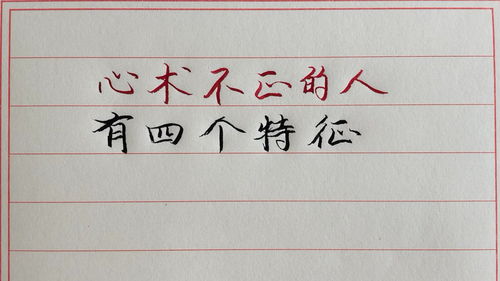 心术不正的人
有四个特征